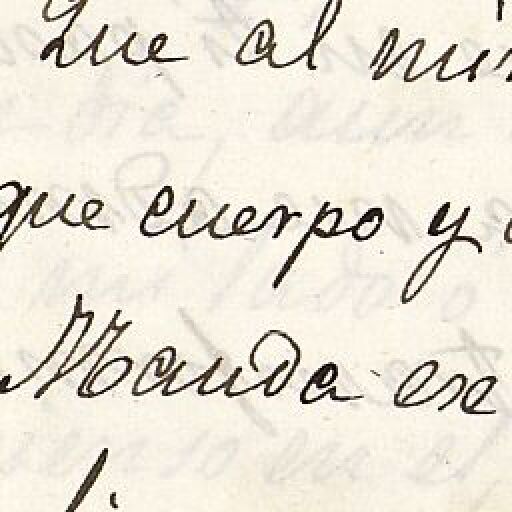 Que al
que cuerpo y
Manda ese